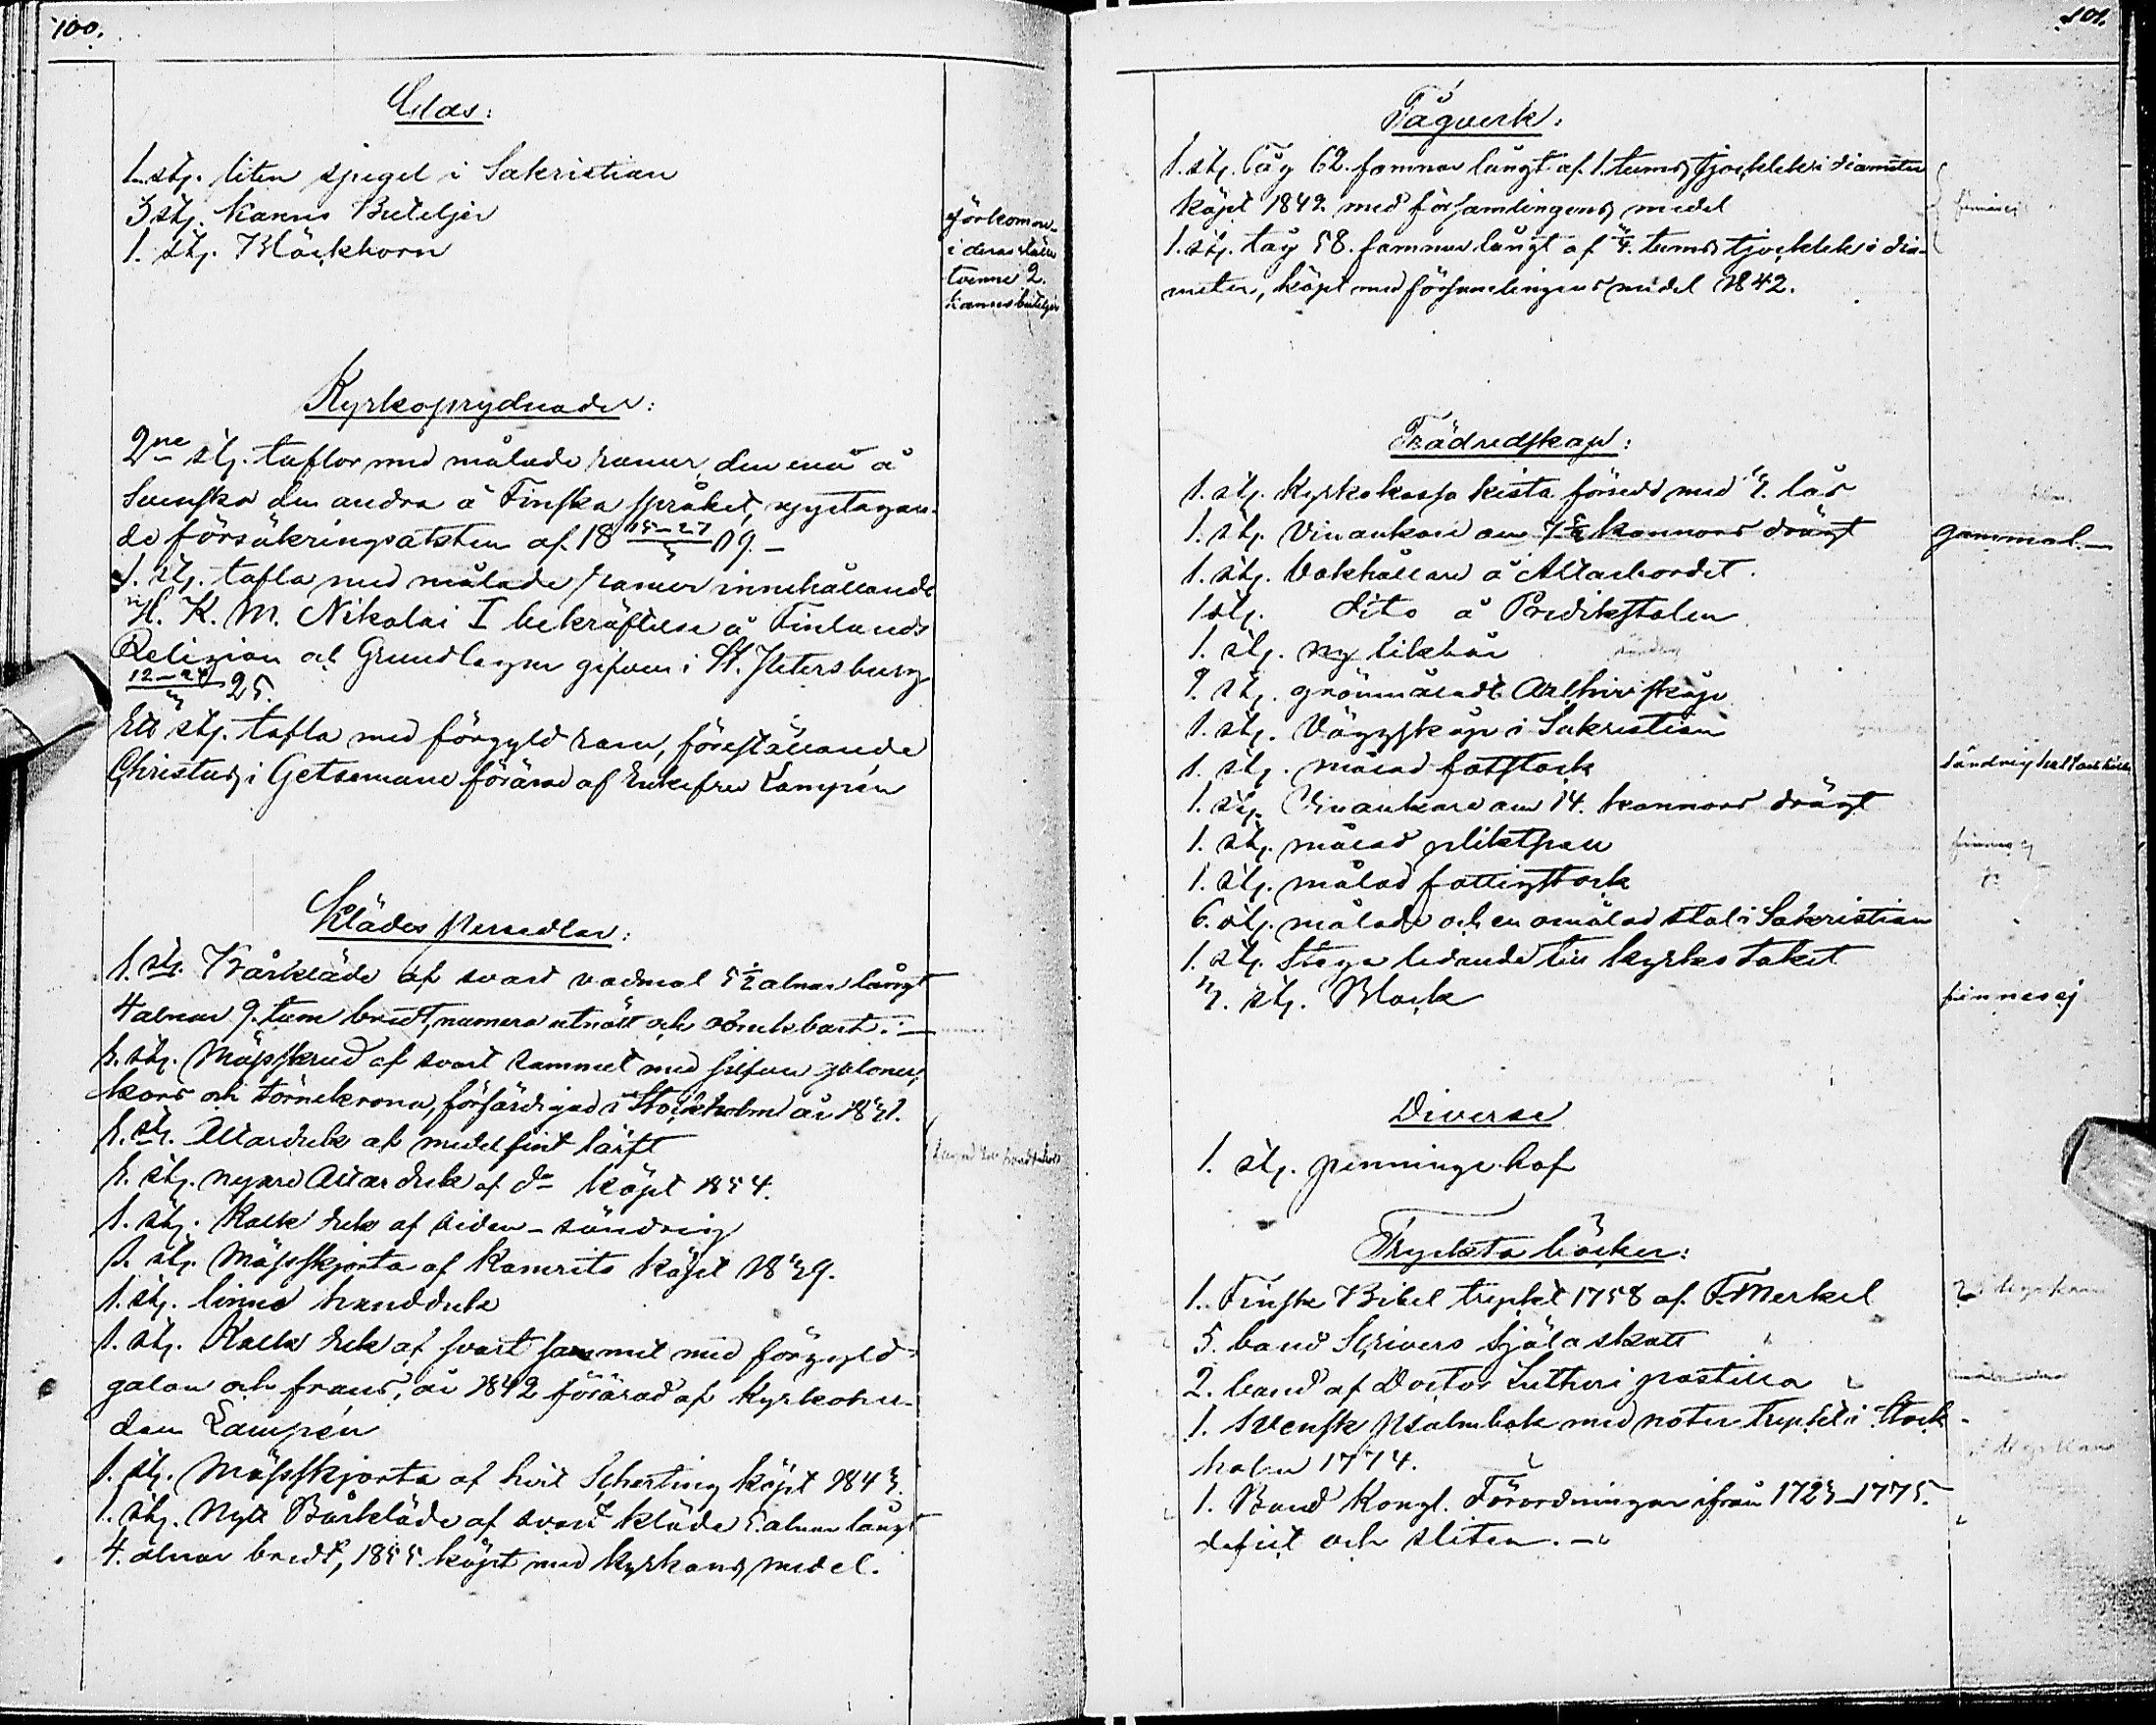 100.
Glas:
1. stj. liten spegel i Sakristian
3 stj. Kanns Buteljer
1. stj. Bläckhorn
förkomne
i deras ställe
tvenne 2.
kanns buteljer
Kyrkoprydnader:
2ne stj. taflor med målade ramer, den ena å
Svenska den andra å Finska språket, upptagan-
de försäkringsakten af 18 15-27/3 09.-
1. stj. tafla med målade ramer innehållande
H. K. M. Nikolai I bekräftelse å Finlands
Religion och Grundlagar gifven i St. Petersburg
12-24 25.
Ett stj. tafla med förgyld ram, föreställande
Christus i Getsemane förärad af Enkefru Lampén
Klädes Persedlar:
1. stj. Bårkläde af svart vadmal 5½ alnar långt
4 alnar 9. tum bredt, numera utnött och obrukbart.
1. stj. Mässskrud af svart sammet med silfver galoner,
kors och törnekrona, förfärdigad i Stockholm år 1831.
1. stj. Altarduk af medelfint lärft
1. stj. nyare Altarduk af do köpt 1854.
1. stj. Kalk duk af siden - söndrig
1. stj. Mässskjorta af Kamrits köpt 1839.
1. stj. linne handduk
1. stj. Kalk duk af svart sammet med förgyld
galon och frans, år 1842 förärad af Kyrkoher-
den Lampén
1. stj. Mässskjorta af hvit Scherting köpt 1843.
1. stj. Nytt Bårkläde af svart kläde 5. alnar långt
4. alnar bredt, 1855 köpt med kyrkans medel.
101.
Tågverk:
1. stj. Tåg 62. famnar långt af 1. tums tjocklek i diameter
köpt 1842 med församlingens medel
1. stj. tåg 58. famnar långt af ¾. tums tjocklek i dia-
meter, köpt med församlingens medel 1842.
finnes ej
Trädredskap:
1. stj. Kyrkokassa kista försedd med 3. lås
1. stj. Vinankare om 7½ kannors drägt
gammal.-
1. stj. Bokhållare å Altarbordet.
1 stj. dito å Predikstolen
1. stj. ny likbår
1. stj. grönmåladt Archivskåp
1. stj. Väggskåp i Sakristian
1. stj. målad fotstock
1. stj. Vinankare om 14. kannors drägt
1. stj. målad pliktpall
finnes ej
1. stj. målad fattigstock
6. stj. målade och en omålad stol i Sakristian
1. stj. Stege ledande till kyrkotaket
3. stj. Block
finnes ej
Diverse
1. stj. penninge haf
Tryckta böcker:
1. Finsk Bibel tryckt 1758 af F. Merkel
5. band Scrivers Själaskatt
2. band af Doctor Lutheri postilla
1. Svensk Psalmbok med noter tryckt i Stock-
holm 1774.
1. Band Kongl. Förordningar ifrån 1723-1775.
defect och sliten.-